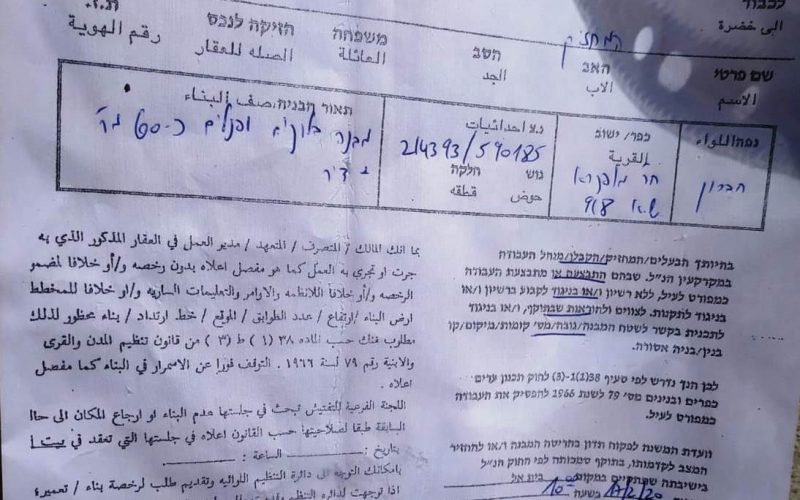 לכבוד
الى حضرة
ת.ז.
המחזיק
שם פרטי
الاسم
האב
الاب
הסב
الجد
משפחה
العائلة
חזיקה לנכס
الصله للعقار
רקם הזהות
رقم الهوية
נפה/اللواء
חברון
כפר/ ישוב
القرية
918
נ.צ احداثيات
214393/590185
גוש
חלקה
حوض
قطعه
תאור הבניה/وصف البناء
מבנה בלוקים ופנלים כ-60 מ"ר
בהיותך הבעלים/המחזיק/הקבלן/מנהל העבודה
במקרקעין הנ"ל. שבהם התבצעה או מתבצעת העבודה
כמפורט לעיל, ללא רשיון ו/או בניגוד לקבוע ברשיון ו/או
בניגוד לתקנות. לצווים ולהוראות שבתוקף, ו/או בניגוד
לתכנית בקשר לשטח המבנה/גובה/מס' קומות/מיקום/קו
בנין/בניה אסורה.
לכן הנך נדרש לפי סעיף 38(1)-(3) לחוק תכנון ערים
כפרים ובנינים מס' 79 לשנת 1966 להפסיק את העבודה
כמפורט לעיל.
וועדת המשנה לפקוח תדון בהריסת המבנה ו/או להחזיר
המצב לקדמותו, בתוקף סמכותה לפי החוק הנ"ל
בישיבתה שתתקיים במקום בית אל
בשעה 10:00
بما انك المالك / المتصرف / المتعهد / مدير العمل في العقار المذكور الذي به
جرت او تجري به العمل كما هو مفصل اعلاه بدون رخصه و/أو خلافا لمضمو
الرخصه و/أو خلافا للانظمه والاوامر والتعليمات الساريه و/او خلافا للمخطط
ارض البناء /ارتفاع / عدد الطوابق / الموقع / خط ارتداد / بناء محظور لذلك
مطلوب منك حسب الماده ٣٨ (١) ط (٣) من قانون تنظيم المدن والقرى
والابنية رقم ٧٩ لسنة ١٩٦٦. التوقف فورا عن الاستمرار في البناء كما مفصل
اعلاه .
اللجنة الفرعية للتفتيش تبحث في جلستها هدم البناء او ارجاع المكان الى حالا
السابقة طبقا لصلاحيتها حسب القانون اعلاه في جلستها التي تعقد في بيت ا
بتاريخ: الساعة :
بامكانك التوجه الى دائرة التنظيم اللوائيه وتقديم طلب لرخصة بناء / تعمير؛